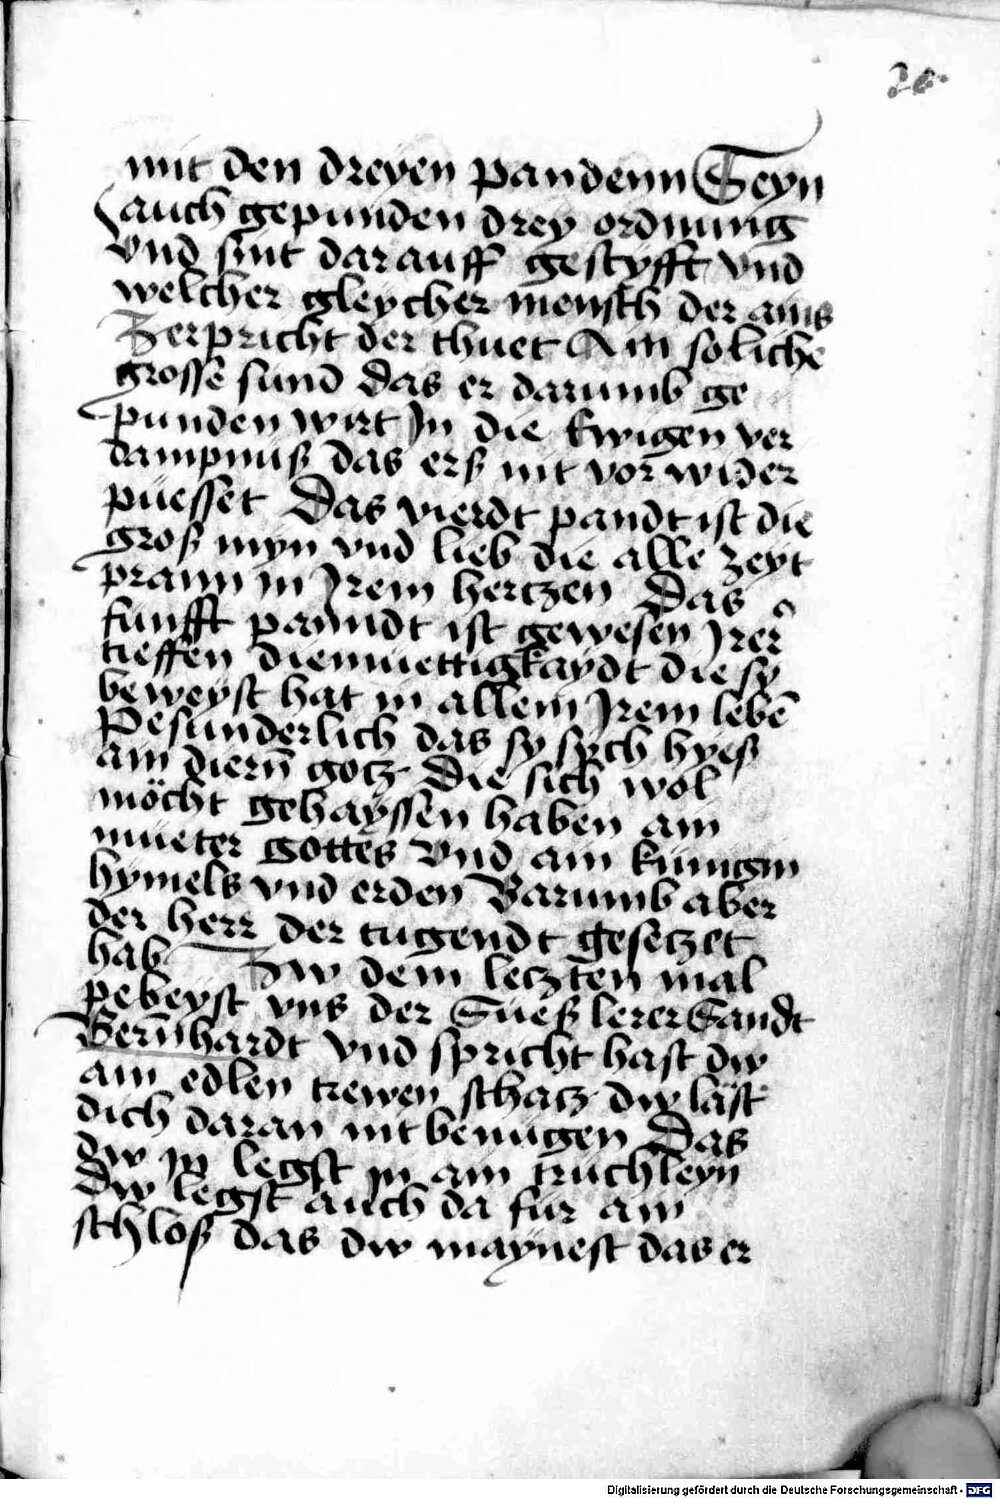 mit den dreyen pandenn Seyn
auch gepunden drey ordnung
vnd sint darauff gestyfft vnd
welcher gleycher mensch der ains
Zerpricht der thuet Ain soliche
grosse sund das er darumb ge
punden wirt In die Ewigen ver
dampnuß das erß nit vor wider
püesset Das vierdt pandt ist die
groß myn vnd lieb die alle zeyt
prann in Irem hertzen Das
funfft panndt ist gewesen Irer
tieffen diemuettigkaydt die sy
beweyst hat in allem Irem lebē
Pesunderlich das sy sych hyeß
ain diern̄ gotz Die sich wol
möcht gehayssen haben ain
mueter gottes vnd ain kunigin
hymels vnd erden Warumb aber
der herr der tugendt gesetzet
hab Zw dem letzten mal
peweyst vns der Sueß lerer Sandt
Bern̄hardt vnd spricht hast dw
ain edlen trewen schatz dw läst
dich daran nit benugen Das
dw in legst in ain truchleyn
Dw legst auch da fur ain
schloß das dw maynest das er
Digitalisierung gefördert durch die Deutsche Forschungsgemeinschaft - DFG